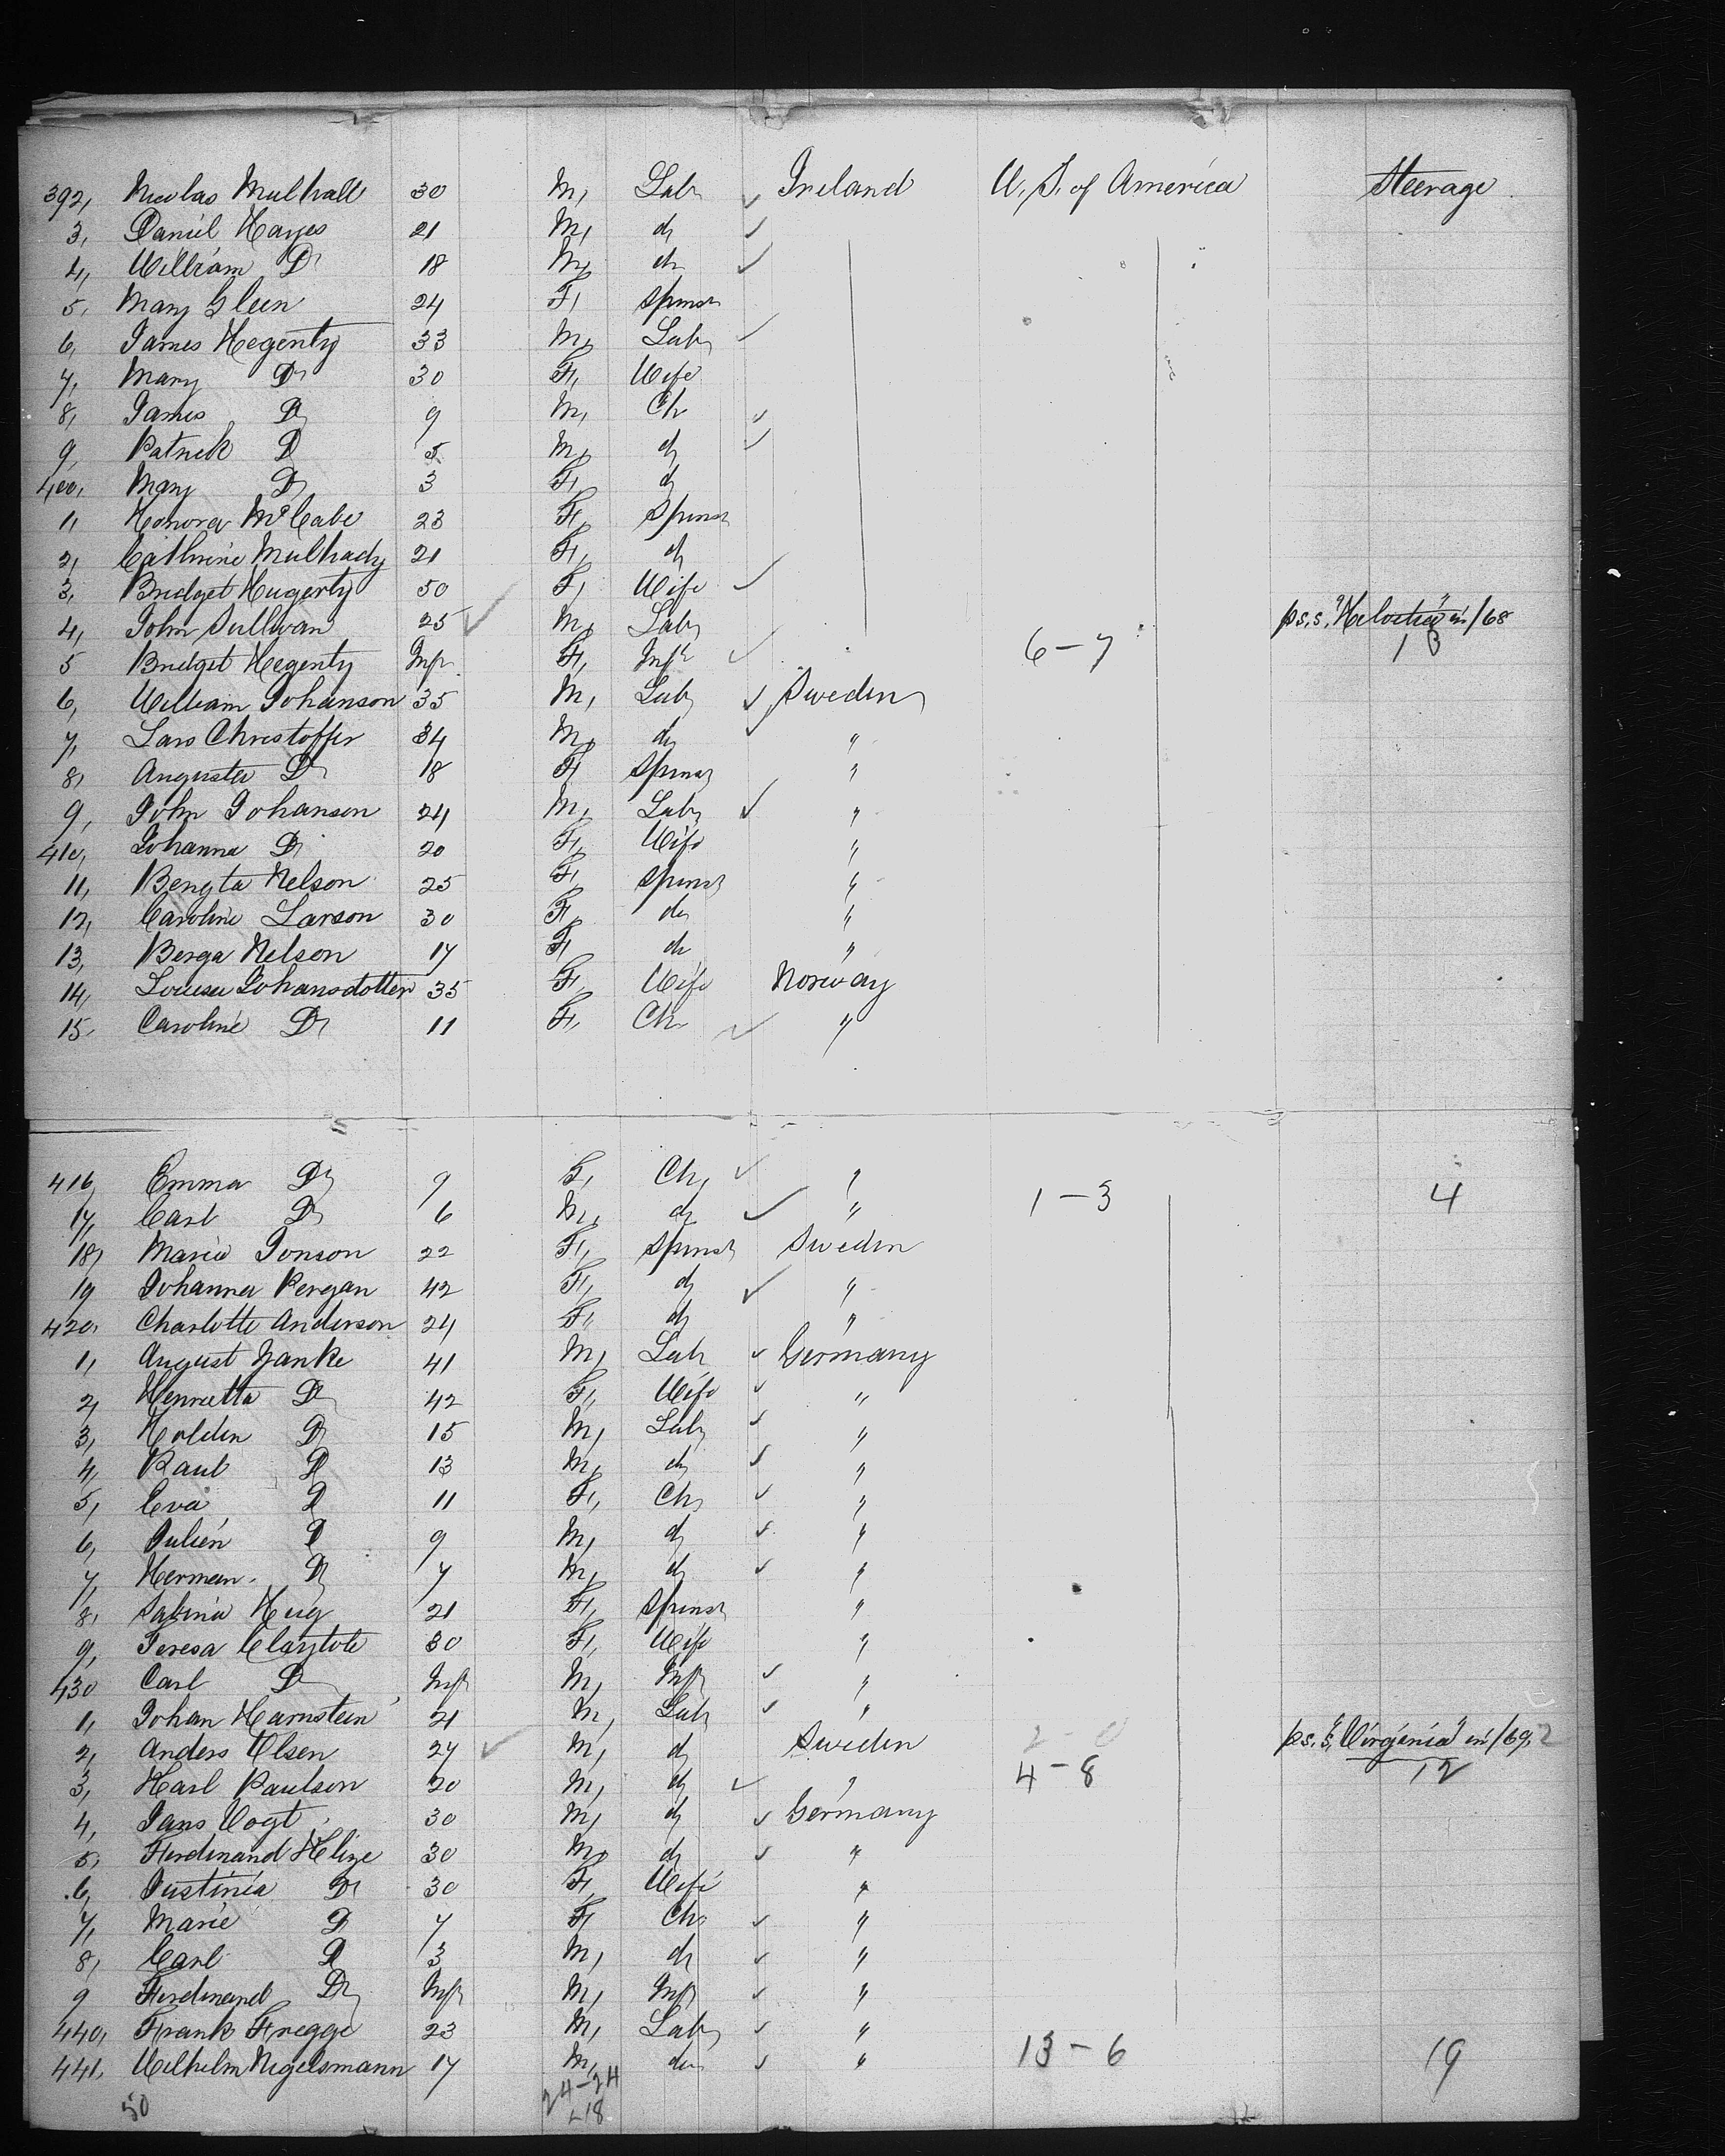 392, Nicolas Mulhall 30 M, Labr Ireland U. S. of America Steerage
3, Daniel Hayes 21 M, do
4, William Do 18 M, do
5, Mary Gleen 24 F, Spinst
6, James Hegerty 33 M, Labr
7, Mary Do 30 F, Wife
8, James Do 9 M, Ch
9, Patrick Do 5 M, do
400, Mary Do 3 F, do
1, Honora McCabe 23 F, Spinst
2, Cathrine Mulhady 21 F, do
3, Bridget Hugerty 50 F, Wife
4, John Sullivan 25 M, Labr ps. s. "Helvetia" in /68
5 Bridget Hegerty Inft F, Inft 6 - 7 13
6, William Johanson 35 M, Labr Sweden
7, Lars Christoffer 34 M, do "
8, Augusta Do 18 F, Spinst "
9, John Johanson 24 M, Labr "
410, Johanna Do 20 F, Wife "
11, Bengta Nelson 25 F, Spinst "
12, Caroline Larson 30 F, do "
13, Berga Nelson 17 F, do "
14, Louisa Johansdotter 35 F, Wife Norway
15, Caroline Do 11 F, Ch "
416, Emma Do 9 F, Ch, "
17, Carl Do 6 M, do " 1 - 3 4
18, Maria Jonson 22 F, Spinst Sweden
19 Johanna Pergan 42 F, do "
420, Charlotte Anderson 24 F, do "
1, August Janke 41 M, Labr Germany
2, Henrietta Do 42 F, Wife "
3, Holdin Do 15 M, Labr "
4, Paul Do 13 M, do "
5, Eva Do 11 F, Ch, "
6, Julien Do 9 M, do "
7, Herman Do 7 M, do "
8, Sabina Hug 21 F, Spinst "
9, Teresa Claytote 30 F, Wife "
430 Carl Do Inft M, Inft "
1, Johan Harnstein 21 M, Labr "
2, Anders Olsen 27 M, do Sweden 2 - 0 ps. s. "Virginia" in /69, 2
3, Karl Paulson 20 M, do " 4 - 8 12
4, Jans Vogt 30 M, do Germany
5, Ferdinand Klize 30 M, do "
6, Justinia Do 30 F, Wife "
7, Marie Do 7 F, Ch "
8, Carl Do 3 M, do "
9 Ferdinand Do Inft M, Inft "
440, Frank Fregge 23 M, Labr "
441, Wilhelm Nigelsmann 17 M, do " 13 - 6 19
50 24 - 24
18